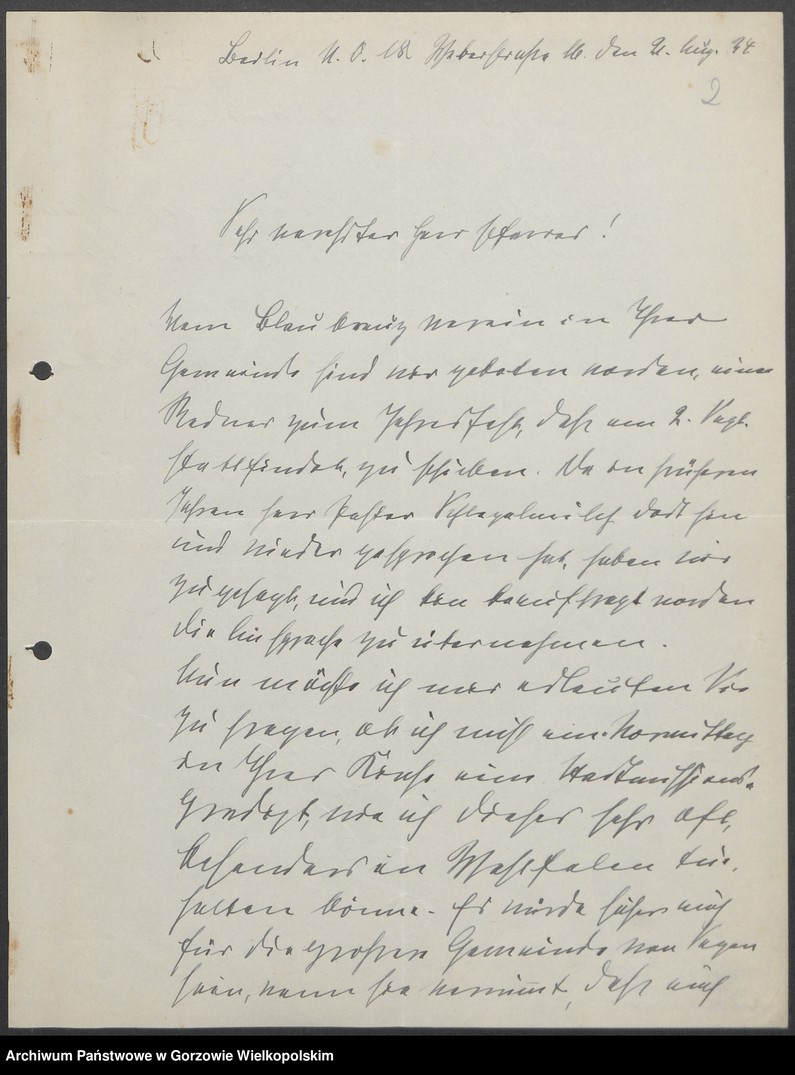 Berlin N. O. 18 Weberstraße 16. den 21. Aug. 34
2
Sehr verehrter Herr Pfarrer!
Vom Blau Kreuz Verein in Ihrer
Gemeinde sind wir gebeten worden, einen
Redner zum Jahresfest, daß am 2. Sept.
stattfindet, zu schicken. Da in früheren
Jahren Herr Pastor Schlegelmilch dort hin
und wieder gesprochen hat, haben wir
zugesagt, und ich bin beauftragt worden
die Ansprache zu übernehmen.
Nun möchte ich mir erlauben Sie
zu fragen, ob ich nicht am Vormittag
in Ihrer Kirche eine Stadtmissions-
predigt, wie ich dieses sehr oft,
besonders in Westfalen tue,
halten könne. Es würde sicher auch
für die größere Gemeinde von Segen
sein, wenn sie vernimmt, daß auch
Archiwum Państwowe w Gorzowie Wielkopolskim